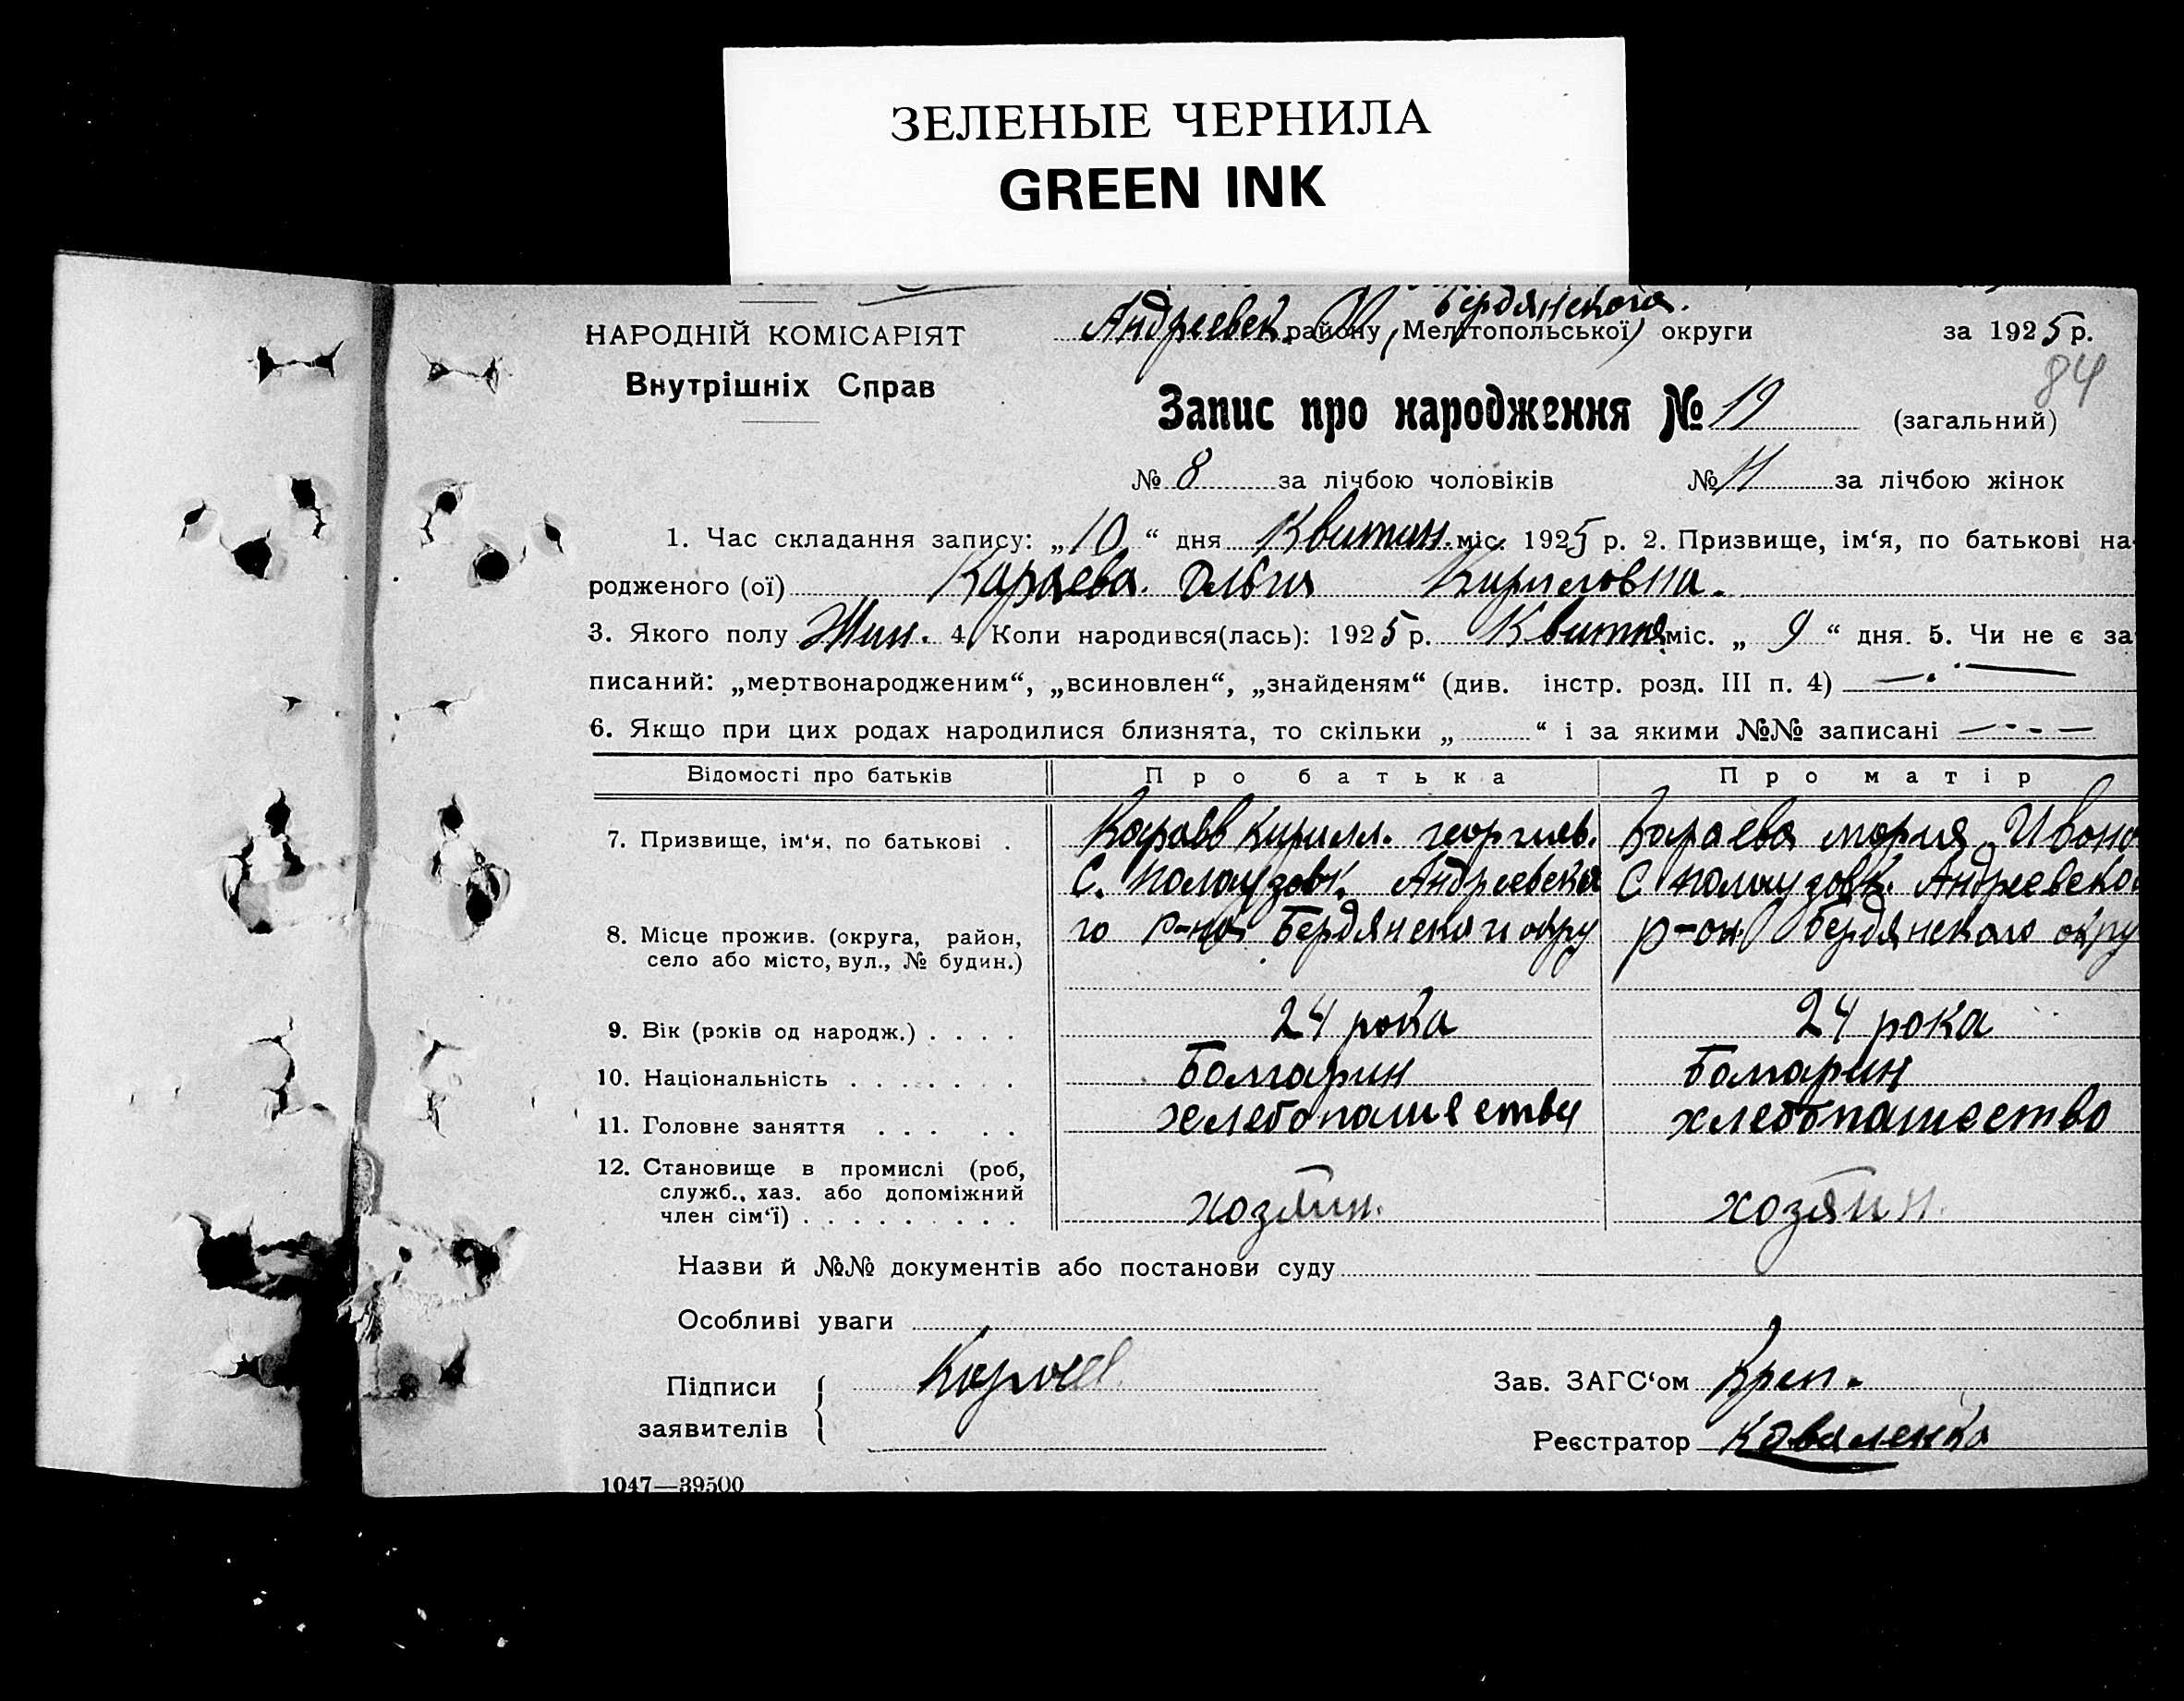 ЗЕЛЕНЫЕ ЧЕРНИЛА
GREEN INK
Бердянского.
НАРОДНІЙ КОМІСАРІЯТ
Андреевск. району (Мелітопольської) округи за 1925 р.
Внутрішніх Справ
84
Запис про народження № 19 (загальний)
№ 8 за лічбою чоловіків № 11 за лічбою жінок
1. Час складання запису: „10“ дня Квитан. міс. 1925 р. 2. Призвище, ім‘я, по батькові на-
родженого (ої) Караева Ольга Кириловна.
3. Якого полу Жин. 4. Коли народився(лась): 1925 р. Квитня міс. „ 9 “ дня. 5. Чи не є за-
писаний: „мертвонародженим“, „всиновлен“, „знайденям“ (див. інстр. розд. III п. 4) —
6. Якщо при цих родах народилися близнята, то скільки „ “ і за якими №№ записані — - - —
Відомості про батьків Про батька Про матір
7. Призвище, ім‘я, по батькові . Караев Кирилл. георгиев. Караева мария Ивано
С. Андреевска С Андреевско
8. Місце прожив. (округа, район, го р-на Бердянского окру р-он. бердянского окру
село або місто, вул., № будин.)
9. Вік (років од народж.) . . . . 24 рока 24 рока
10. Національність . . . . . . . Болгарин Болгарин
11. Головне заняття . . . . . хлебопашество хлебопашество
12. Становище в промислі (роб,
служб., хаз. або допоміжний хозяин. хозяин.
член сім‘ї) . . . . . . . . .
Назви й №№ документів або постанови суду
Особливі уваги
Підписи Караев Зав. ЗАГС‘ом
заявителів Реєстратор Коваленко
1047—39500